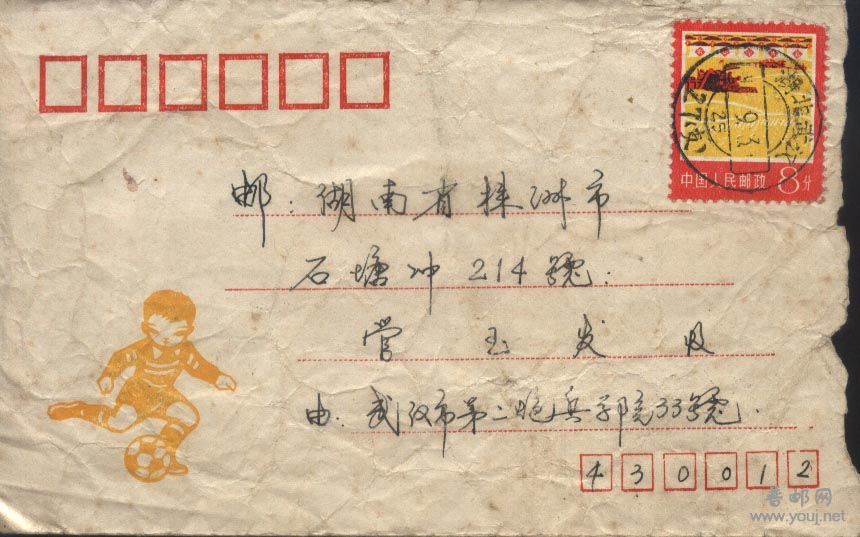 中国人民邮政 8分
湖北武汉
邮: 湖南省株洲市
石塘冲 214 號.
管玉发 收
由. 武汉市第二炮兵学院33号號.
430012
晋邮网
www.youj.net